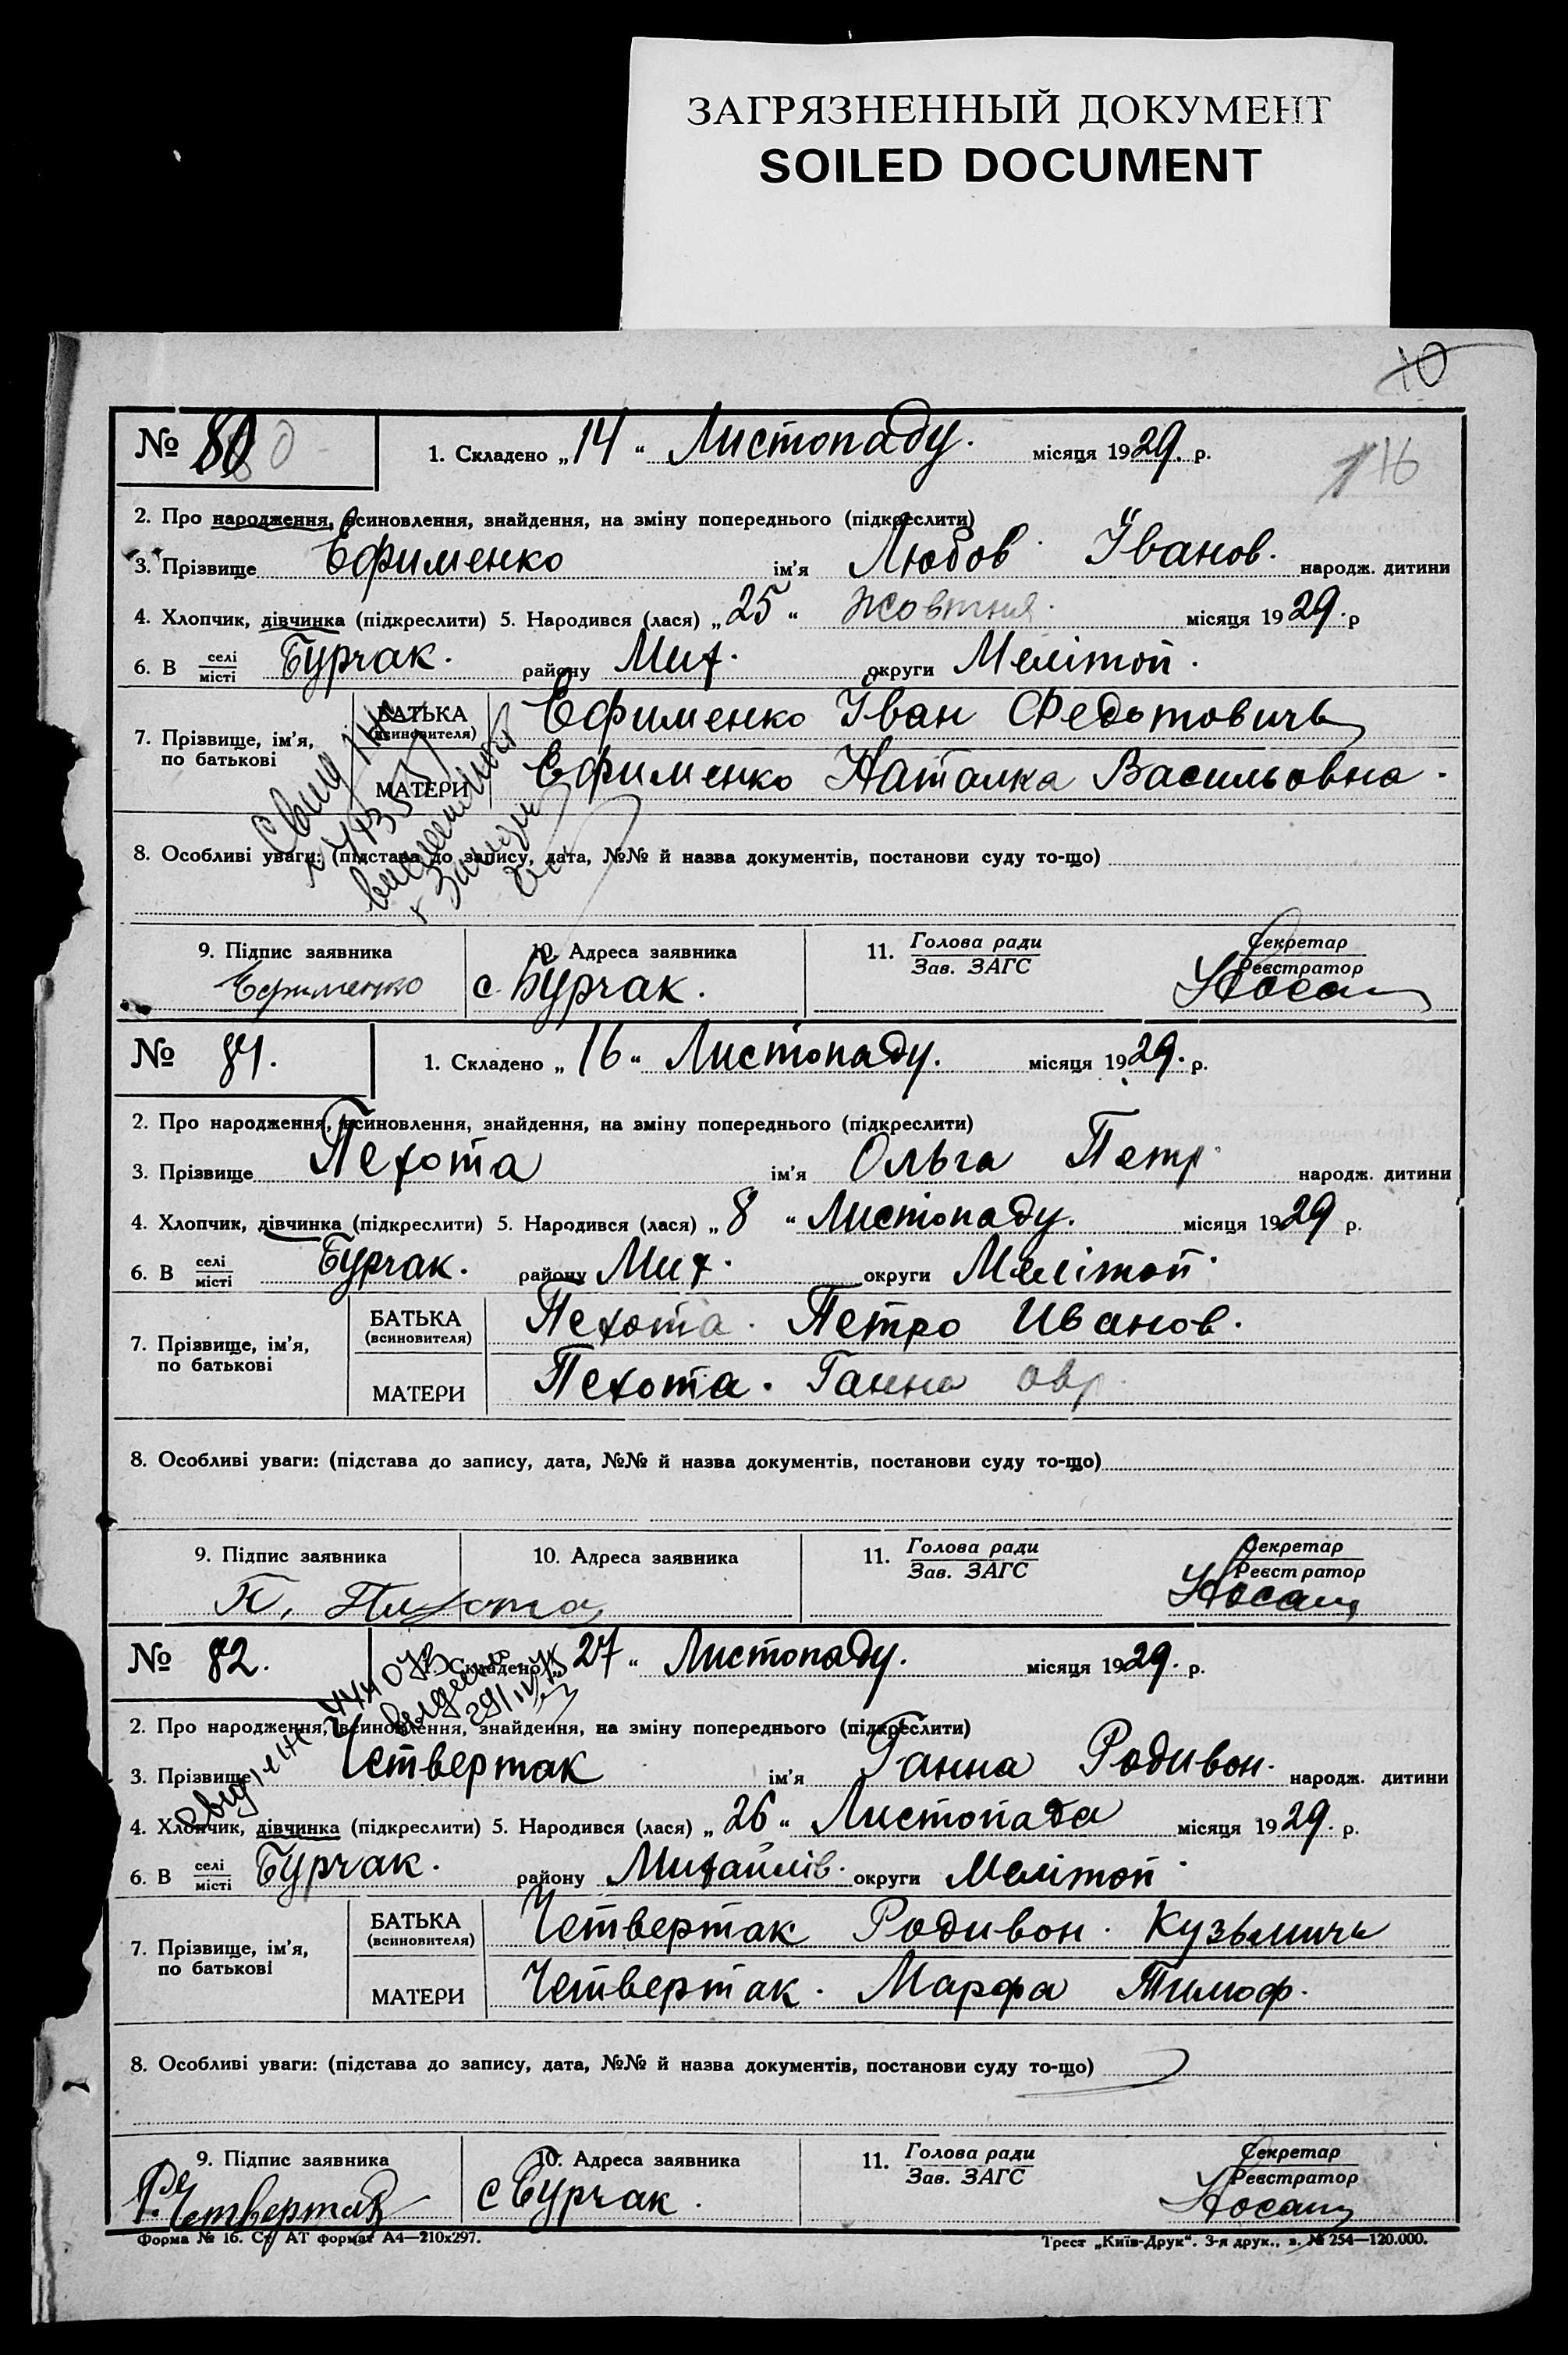 ЗАГРЯЗНЕННЫЙ ДОКУМЕНТ
SOILED DOCUMENT
10
№ 80
1. Складено „14“ Листопаду. місяця 1929. р.
116
2. Про народження, всиновлення, знайдення, на зміну попереднього (підкреслити)
3. Прізвище Ефименко ім'я Любов Їванов. народж. дитини
4. Хлопчик, дівчинка (підкреслити) 5. Народився (лася) „25“ жовтня. місяця 1929. р
6. В селі місті Бурчак. району Мих. округи Мелітоп.
7. Прізвище, ім'я, по батькові
БАТЬКА (всиновителя) Ефименко Їван Федотовичь
МАТЕРИ Ефименко Наталка Васильовна.
8. Особливі уваги: (підстава до запису, дата, №№ й назва документів, постанови суду то-що)
9. Підпис заявника 10. Адреса заявника 11. Голова ради Зав. ЗАГС Секретар Реєстратор
Ефименко с. Бурчак.
№ 81.
1. Складено „16“ Листопаду. місяця 1929. р.
2. Про народження, всиновлення, знайдення, на зміну попереднього (підкреслити)
3. Прізвище Пехота ім'я Ольга Петр. народж. дитини
4. Хлопчик, дівчинка (підкреслити) 5. Народився (лася) „8“ Листопаду. місяця 1929 р.
6. В селі місті Бурчак. району Мих. округи Мелітоп.
7. Прізвище, ім'я, по батькові
БАТЬКА (всиновителя) Пехота. Петро Иванов.
МАТЕРИ Пехота. Ганна
8. Особливі уваги: (підстава до запису, дата, №№ й назва документів, постанови суду то-що)
9. Підпис заявника 10. Адреса заявника 11. Голова ради Зав. ЗАГС Секретар Реєстратор
П. Пихота
№ 82.
1. Складено „27“ Листопаду. місяця 1929. р.
2. Про народження, всиновлення, знайдення, на зміну попереднього (підкреслити)
3. Прізвище Четвертак ім'я Ганна Родивон. народж. дитини
4. Хлопчик, дівчинка (підкреслити) 5. Народився (лася) „26“ Листопада місяця 1929. р.
6. В селі місті Бурчак. району Михайлів. округи Мелітоп.
7. Прізвище, ім'я, по батькові
БАТЬКА (всиновителя) Четвертак Родивон. Кузьмичь
МАТЕРИ Четвертак. Марфа Тимоф.
8. Особливі уваги: (підстава до запису, дата, №№ й назва документів, постанови суду то-що)
9. Підпис заявника 10. Адреса заявника 11. Голова ради Зав. ЗАГС Секретар Реєстратор
Четвертак с Бурчак.
Форма № 16. Ст АТ формат А4—210x297. Трест „Київ-Друк“. 3-я друк., з. № 254—120.000.